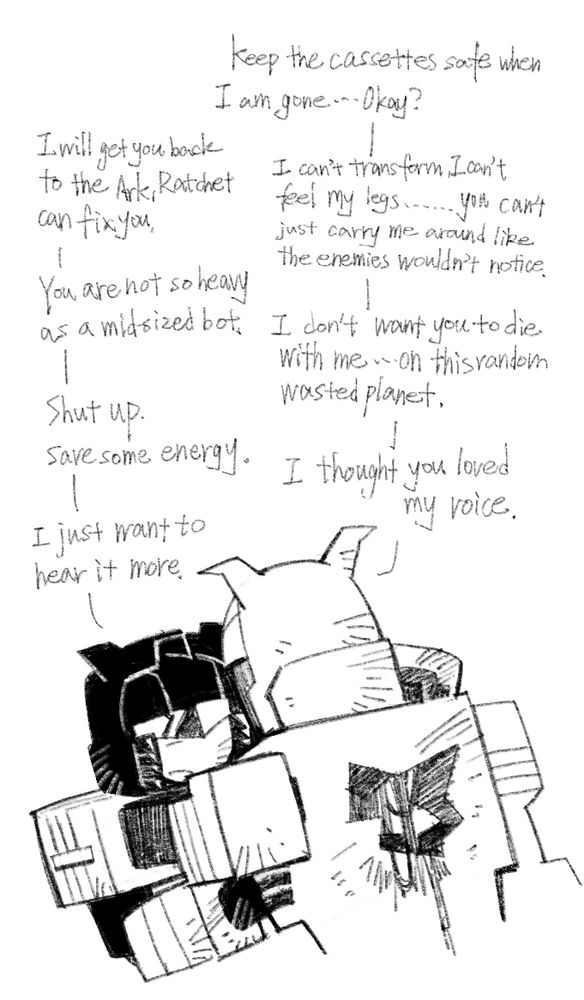 keep the cassettes safe when
I am gone... Okay?
I will get you back
to the Ark, Ratchet
can fix you.
I can't transform, I can't
feel my legs....... you can't
just carry me around like
the enemies wouldn't notice.
You are not so heavy
as a mid-sized bot.
I don't want you to die
with me...on this random
wasted planet.
Shut up.
save some energy.
I thought you loved
my voice.
I just want to
hear it more.